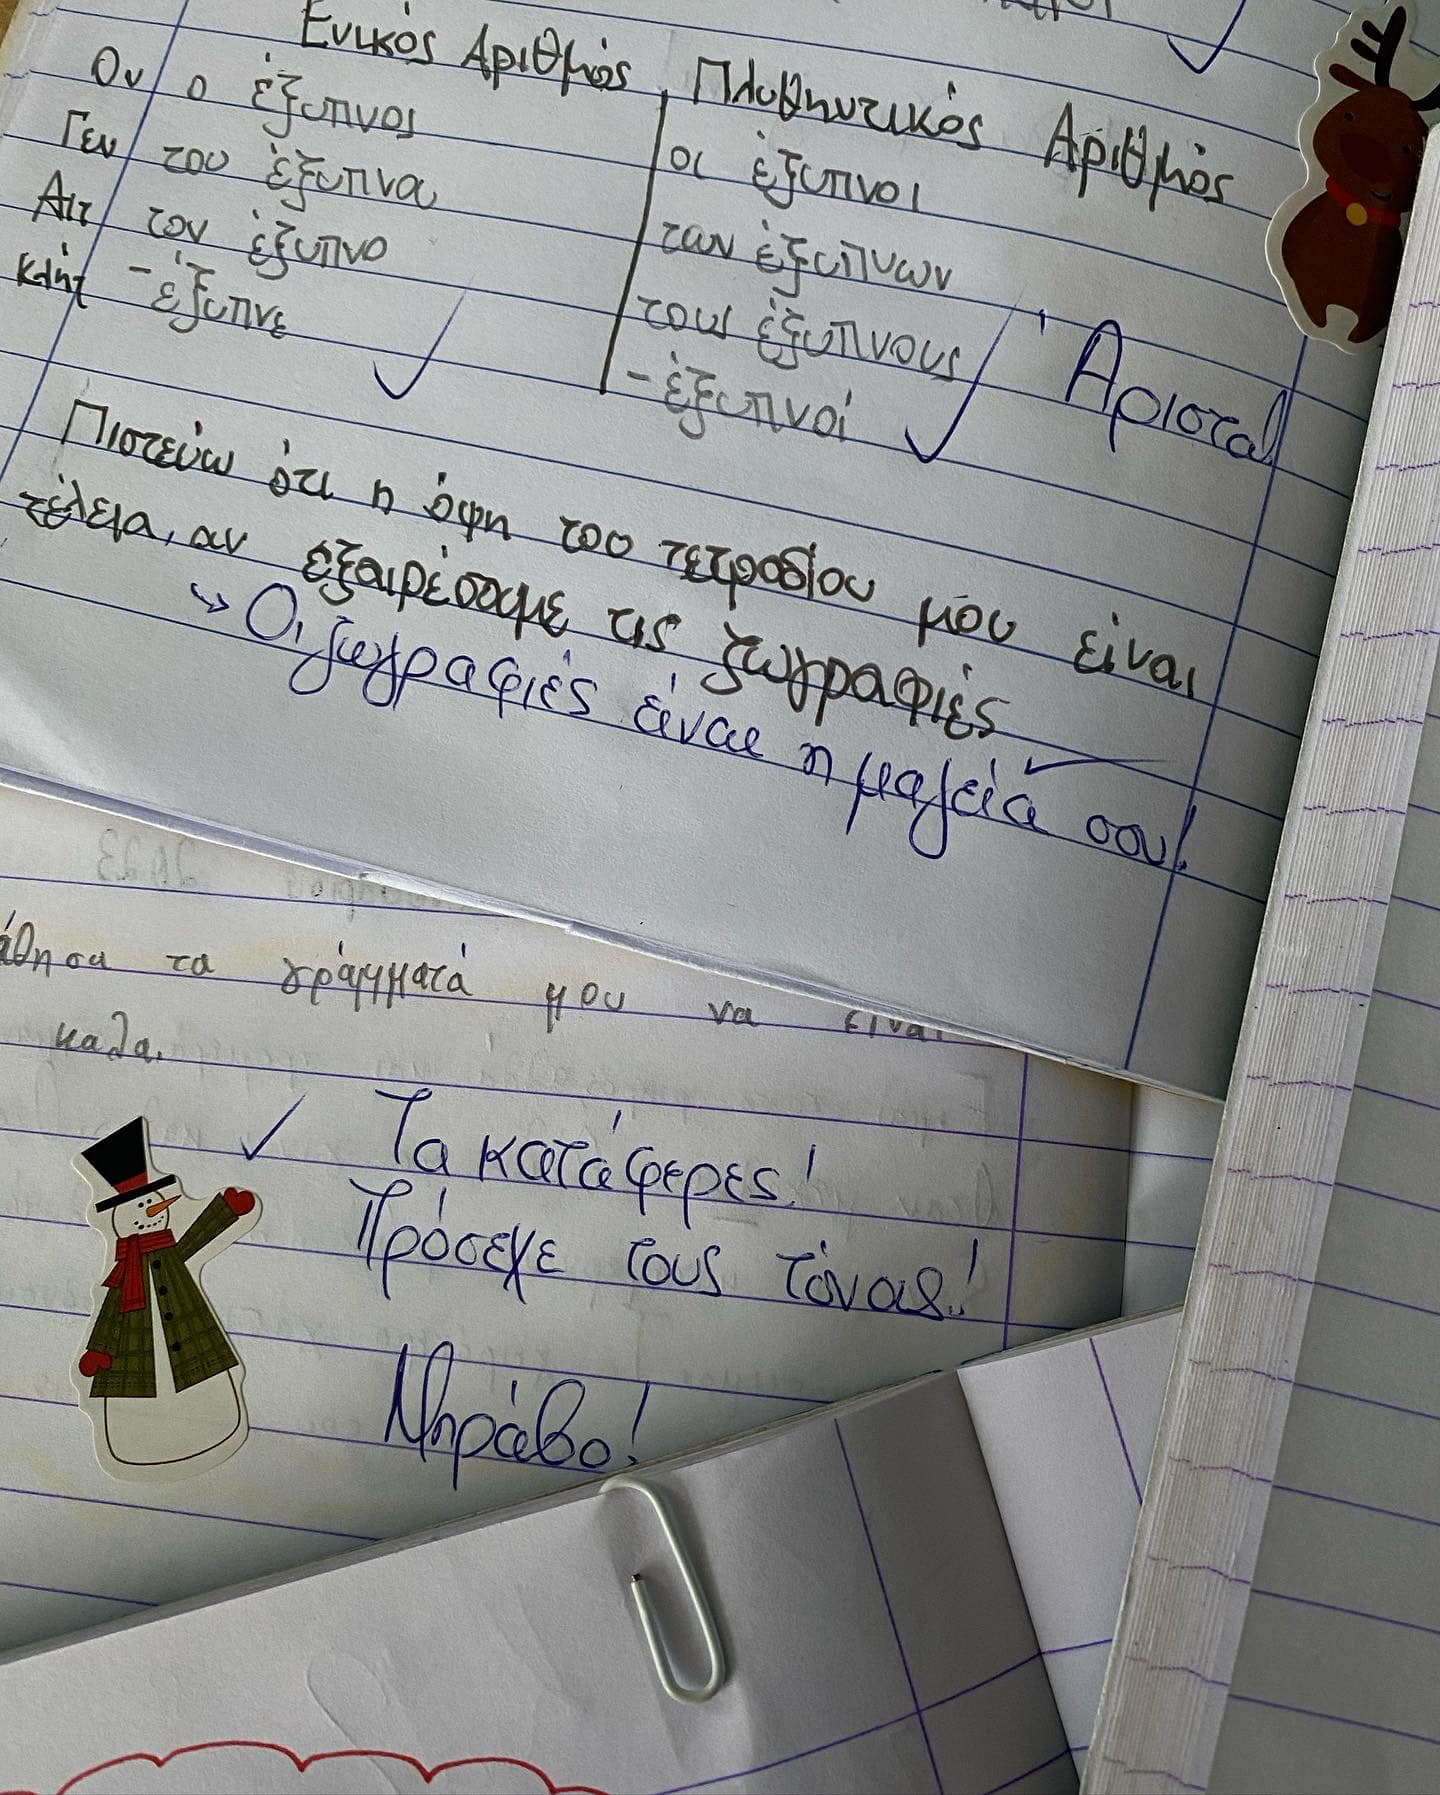 Ενικός Αριθμός Πληθηντικός Αριθμός
Ον ο έξυπνος οι έξυπνοι
Γεν του έξυπνα των έξυπνων
Αιτ τον έξυπνο τους έξυπνους
Κλητ - έξυπνε - έξυπνοί
Άριστα!
Πιστεύω ότι η όψη του τετραδίου μου είναι
τέλεια, αν εξαιρέσουμε τις ζωγραφιές
Οι ζωγραφιές είναι η μαγεία σου!
2023
άθησα τα γράμματά μου να είναι
καλα.
Τα κατάφερες!
Πρόσεχε τους τόνους!
Μπράβο!